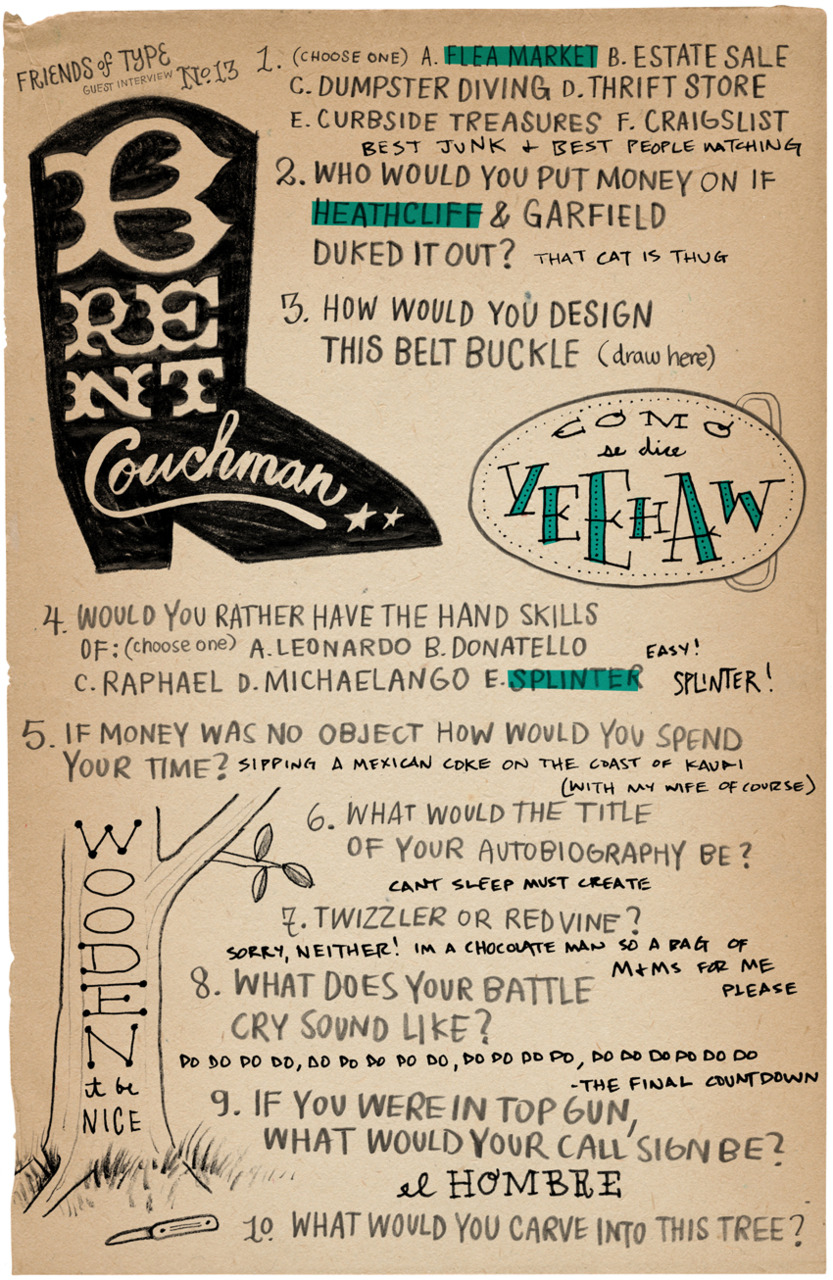 FRIENDS of TYPE
GUEST INTERVIEW No.13
BRENT
Couchman
1. (CHOOSE ONE) A. FLEA MARKET B. ESTATE SALE
C. DUMPSTER DIVING D. THRIFT STORE
E. CURBSIDE TREASURES F. CRAIGSLIST
BEST JUNK + BEST PEOPLE WATCHING
2. WHO WOULD YOU PUT MONEY ON IF
HEATHCLIFF & GARFIELD
DUKED IT OUT? THAT CAT IS THUG
3. HOW WOULD YOU DESIGN
THIS BELT BUCKLE (draw here)
COMO
se dice
YEEHAW
4. WOULD YOU RATHER HAVE THE HAND SKILLS
OF: (choose one) A. LEONARDO B. DONATELLO
C. RAPHAEL D. MICHAELANGO E. SPLINTER
EASY!
SPLINTER!
5. IF MONEY WAS NO OBJECT HOW WOULD YOU SPEND
YOUR TIME? SIPPING A MEXICAN COKE ON THE COAST OF KAUAI
(WITH MY WIFE OF COURSE)
6. WHAT WOULD THE TITLE
OF YOUR AUTOBIOGRAPHY BE?
CANT SLEEP MUST CREATE
7. TWIZZLER OR REDVINE?
SORRY, NEITHER! IM A CHOCOLATE MAN SO A BAG OF
M+MS FOR ME
PLEASE
8. WHAT DOES YOUR BATTLE
CRY SOUND LIKE?
DO DO DO DO, DO DO DO DO DO, DO DO DO DO, DO DO DO DO DO DO
-THE FINAL COUNTDOWN
9. IF YOU WERE IN TOP GUN,
WHAT WOULD YOUR CALL SIGN BE?
el HOMBRE
10. WHAT WOULD YOU CARVE INTO THIS TREE?
WOODEN
it be
NICE